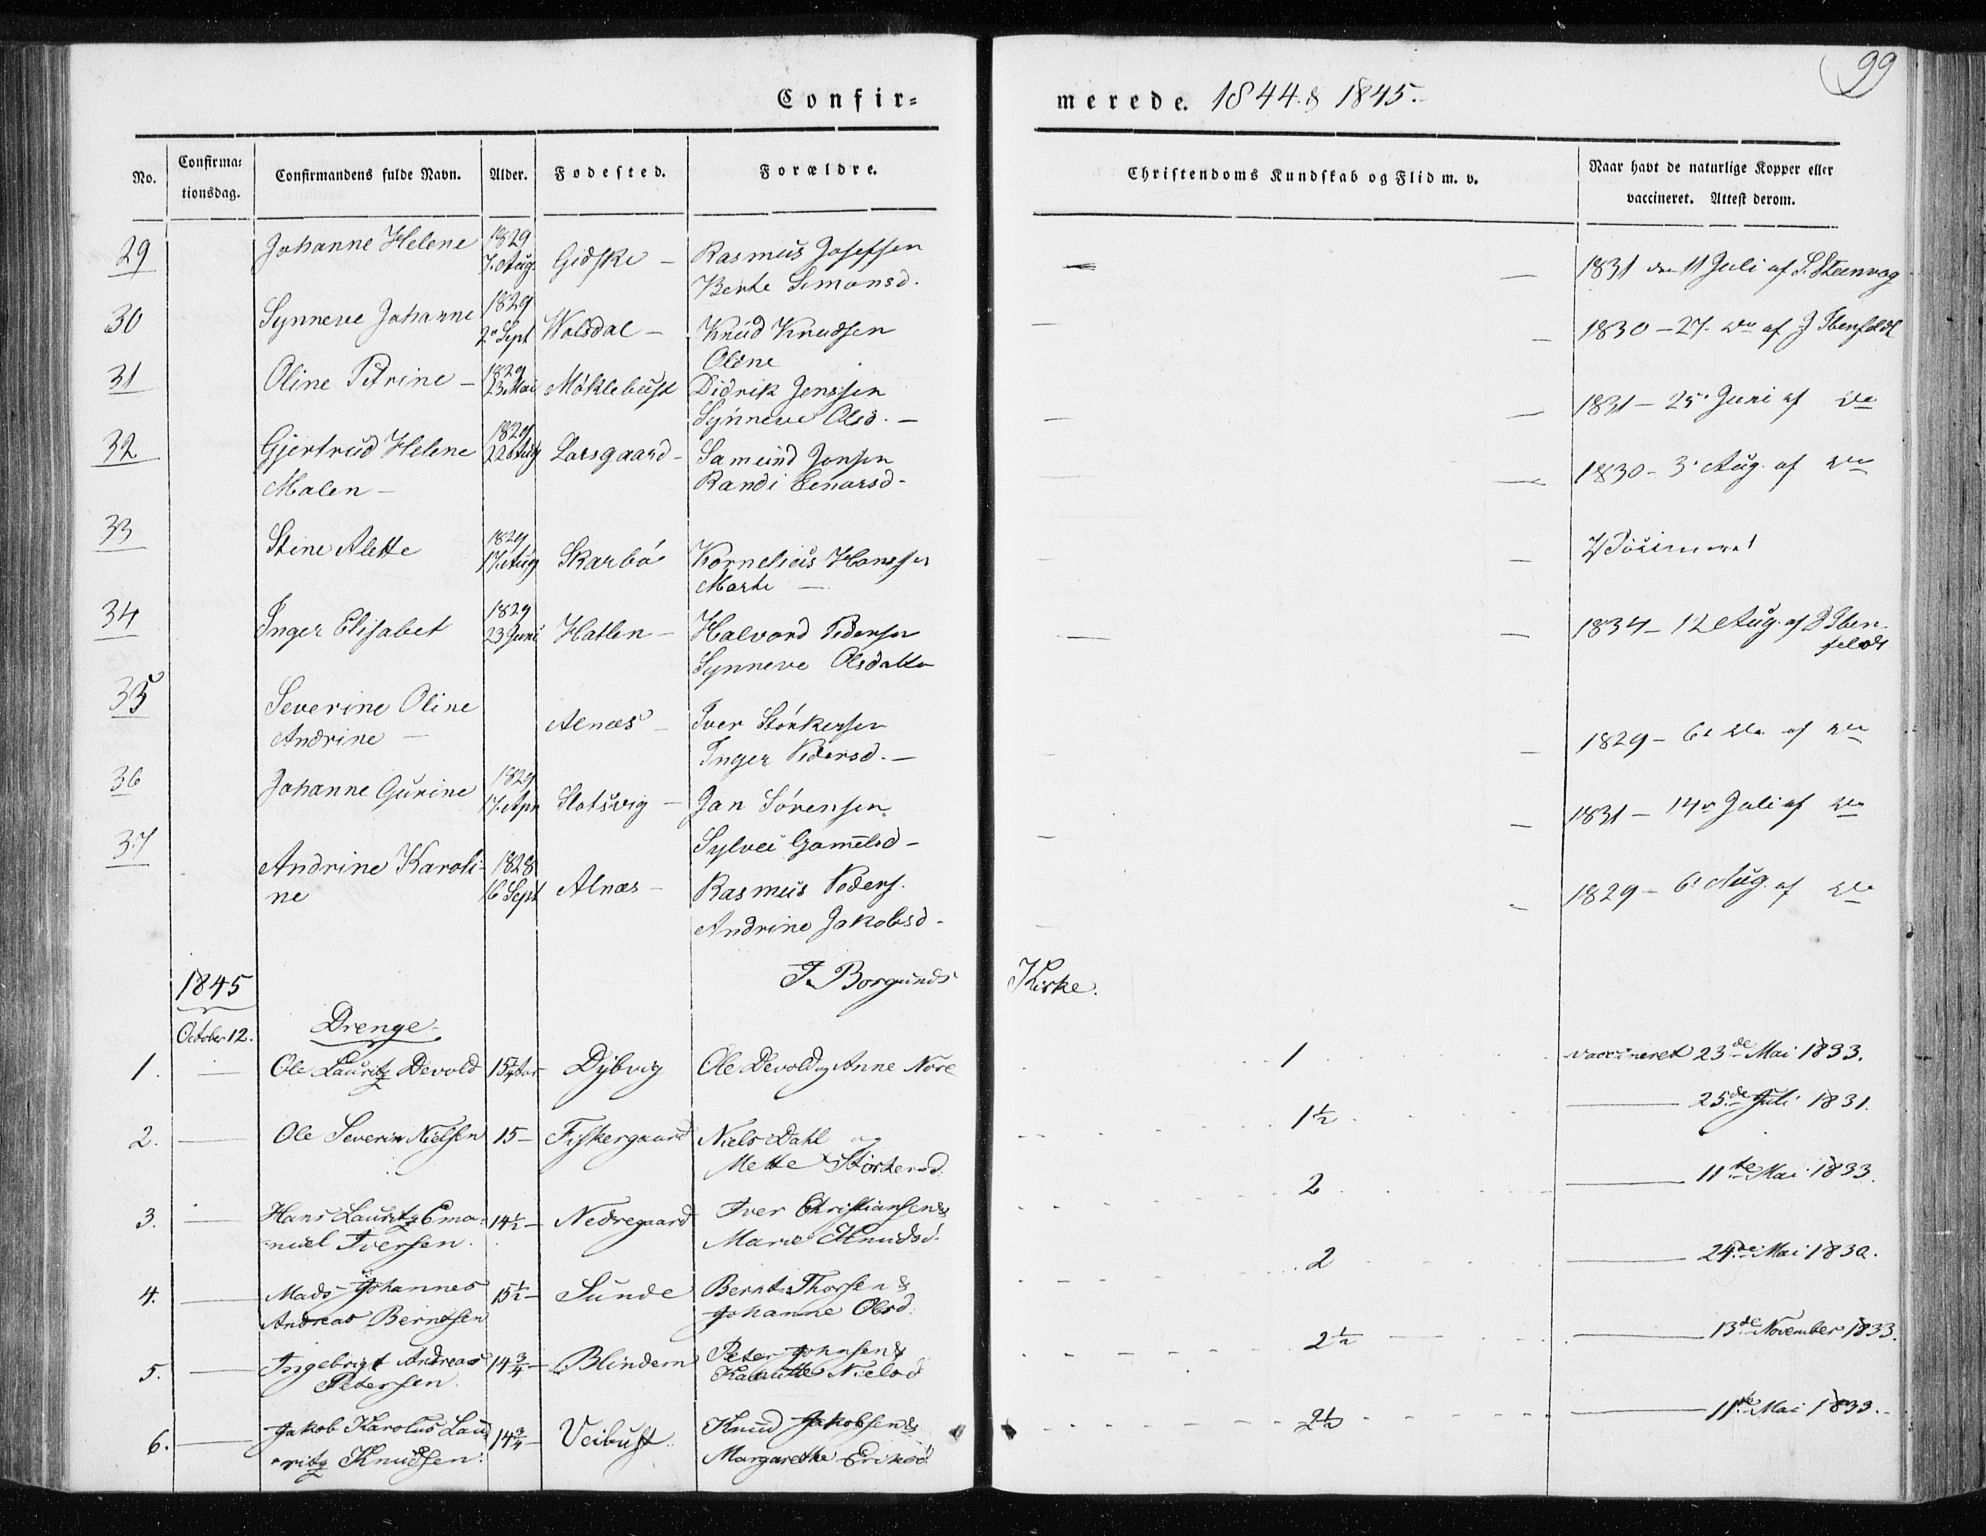 99
Confir=
merede. 1844 & 1845.
No.
Confirma=
tionsdag.
Confirmandens fulde Navn.
Alder.
Fødested.
Forældre.
Christendoms Kundskab og Flid m. v.
Naar havt de naturlige Kopper eller
vaccineret. Attest derom.
29 Johanne Helene 1829 7. Aug. Gidske – Rasmus Josefsen
Berte Simonsd. — — 1831 den 11 Juli af P. Steenvog
30 Synneve Johanne 1829 2. Sept Walsdal – Knud Knudsen
Oline — — 1830 – 27. af J Ibenfeldt
31 Oline Petrine – 1829 23. Mai Möklebust Didrik Jenssen
Synneve Olsd. – — — 1831 – 25. Juni af do
32 Gjertrud Helene 1829 22 Aug Larsgaard – Samund Jonsen
Malen – Randi Einarsd – — — 1830 – 3. Aug. af do
33 Stine Alette 1829 17. Aug Skarbö Kornelius Hanssen
Marte – — —
34 Inger Elisabet 1829 23 Juni Hatlen – Halvard Pedersen
Synneve Olsdatte — — 1834 – 12 Aug. af J Iben-
feldt
35 Severine Oline
Andrine – Alnæs – Iver Störkersen
Inger Pedersd. – — 1829 – 6. do af do
36 Johanne Gurine 1829 17. Apr Slotsvig – Jan Sörensen
Sylvei Gamelsd – — — 1831 – 14. Juli af do
37 Andrine Karoli- 1828 16 Sept Alnæs – Rasmus Peders.
ne Andrine Jakobsd – — — 1829 – 6. Aug. af do
1845 I Borgunds Kirke.
October 12. Drenge
1. — Ole Lauritz Devold Dybvig Ole Devold og Anne Nore 1 vaccineret 23de Mai 1833.
2. — Ole Severin Nielsen 15 – Fiskergaard Niels Dahl og
Mette Störkersd. 1½ — 25de Juli 1831.
3. — Hans Lauritz Ema- 14½ – Nedregaard Iver Christiansen &
=nuel Iversen. Marie Knudsd. 2 — 11te Mai 1833.
4. — Mads Johannes 15½ – Sunde Bernt Thorsen &
Andreas Berntsen Johanne Olsd. 2 — 24de Mai 1830.
5. — Ingebrigt Andreas 14¾ – Blindem Peter Johnsen &
Petersen. Nielsd 2½ — 13de November 1833.
6. — Jakob Karolus Lau= 14¾ – Veibust Knud Jakobsen &
=ritz Knudsen. Margarethe Eriksd. 2½ — 11te Mai 1833.